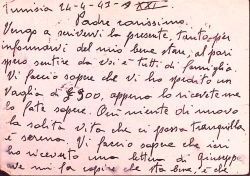 Tunisia 24-4-43-XXI
Padre carissimo.
Vengo a scrivervi la presente, tanto per
informarvi del mio bene stare, al pari
spero sentire da voi e tutti di famiglia.
Vi faccio sapere che vi ho spedito un
Vaglia di £900, appena lo ricevete me
lo fate sapere. Qui niente di nuovo
la solita vita che si passa tranquilla
e serena. Vi faccio sapere che ieri
ho ricevuto una lettera di Giuseppe
mi fa capire che sta bene, e che